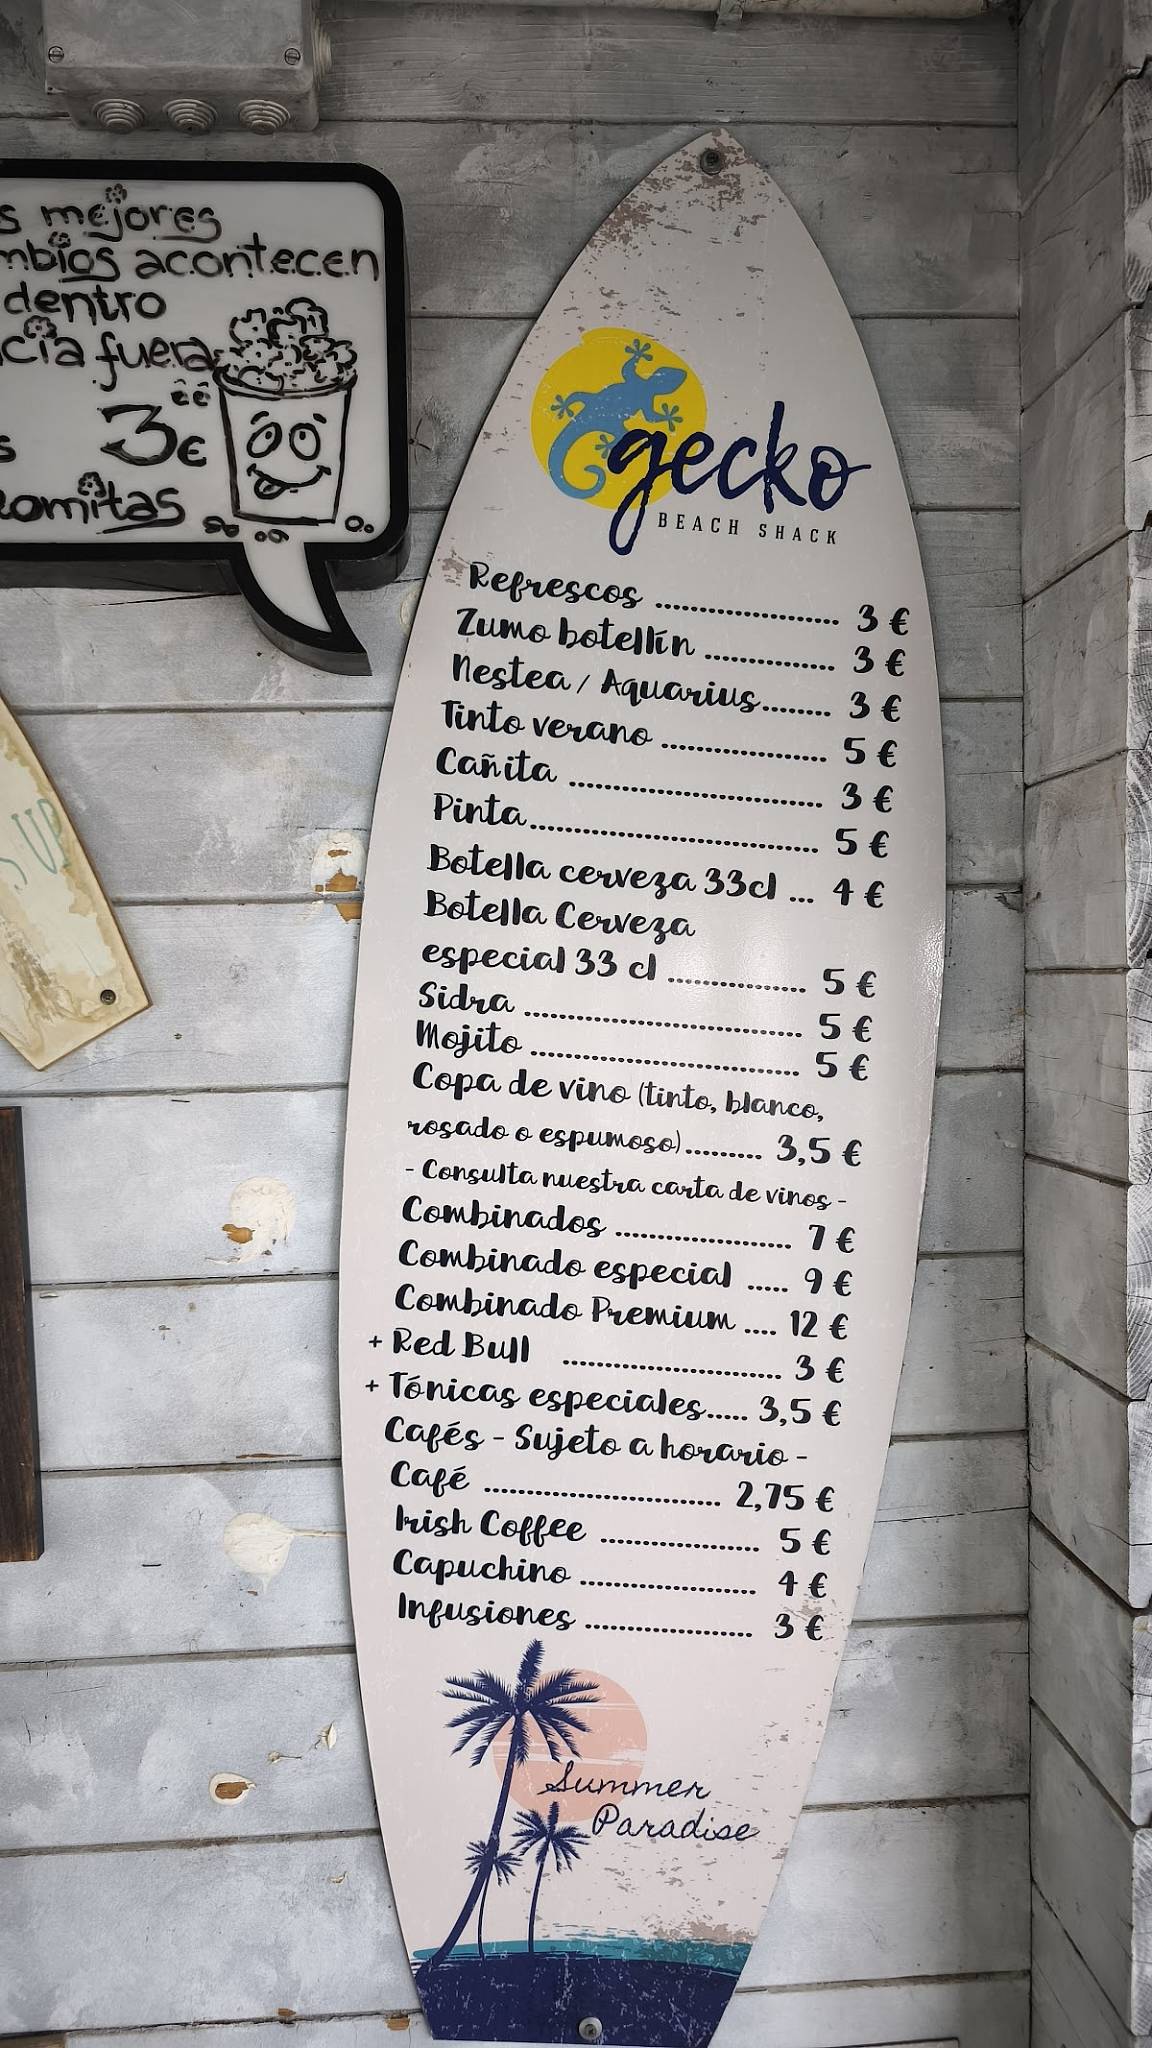 mejores
acontecen
dentro
fuera
3€
gecko
BEACH SHACK
Refrescos ........................ 3 €
Zumo botellín ................. 3 €
Nestea / Aquarius......... 3 €
Tinto verano ..................... 5 €
Cañita ................................. 3 €
Pinta..................................... 5 €
Botella cerveza 33cl ... 4 €
Botella Cerveza
especial 33 cl .................. 5 €
Sidra .................................... 5 €
Mojito ................................... 5 €
Copa de vino (tinto, blanco,
rosado o espumoso).......... 3,5 €
- Consulta nuestra carta de vinos -
Combinados ....................... 7 €
Combinado especial ..... 9 €
Combinado Premium .... 12 €
+ Red Bull ............................ 3 €
+ Tónicas especiales..... 3,5 €
Cafés - Sujeto a horario -
Café ............................... 2,75 €
Irish Coffee ..................... 5 €
Capuchino ....................... 4 €
Infusiones ...................... 3 €
Summer
Paradise